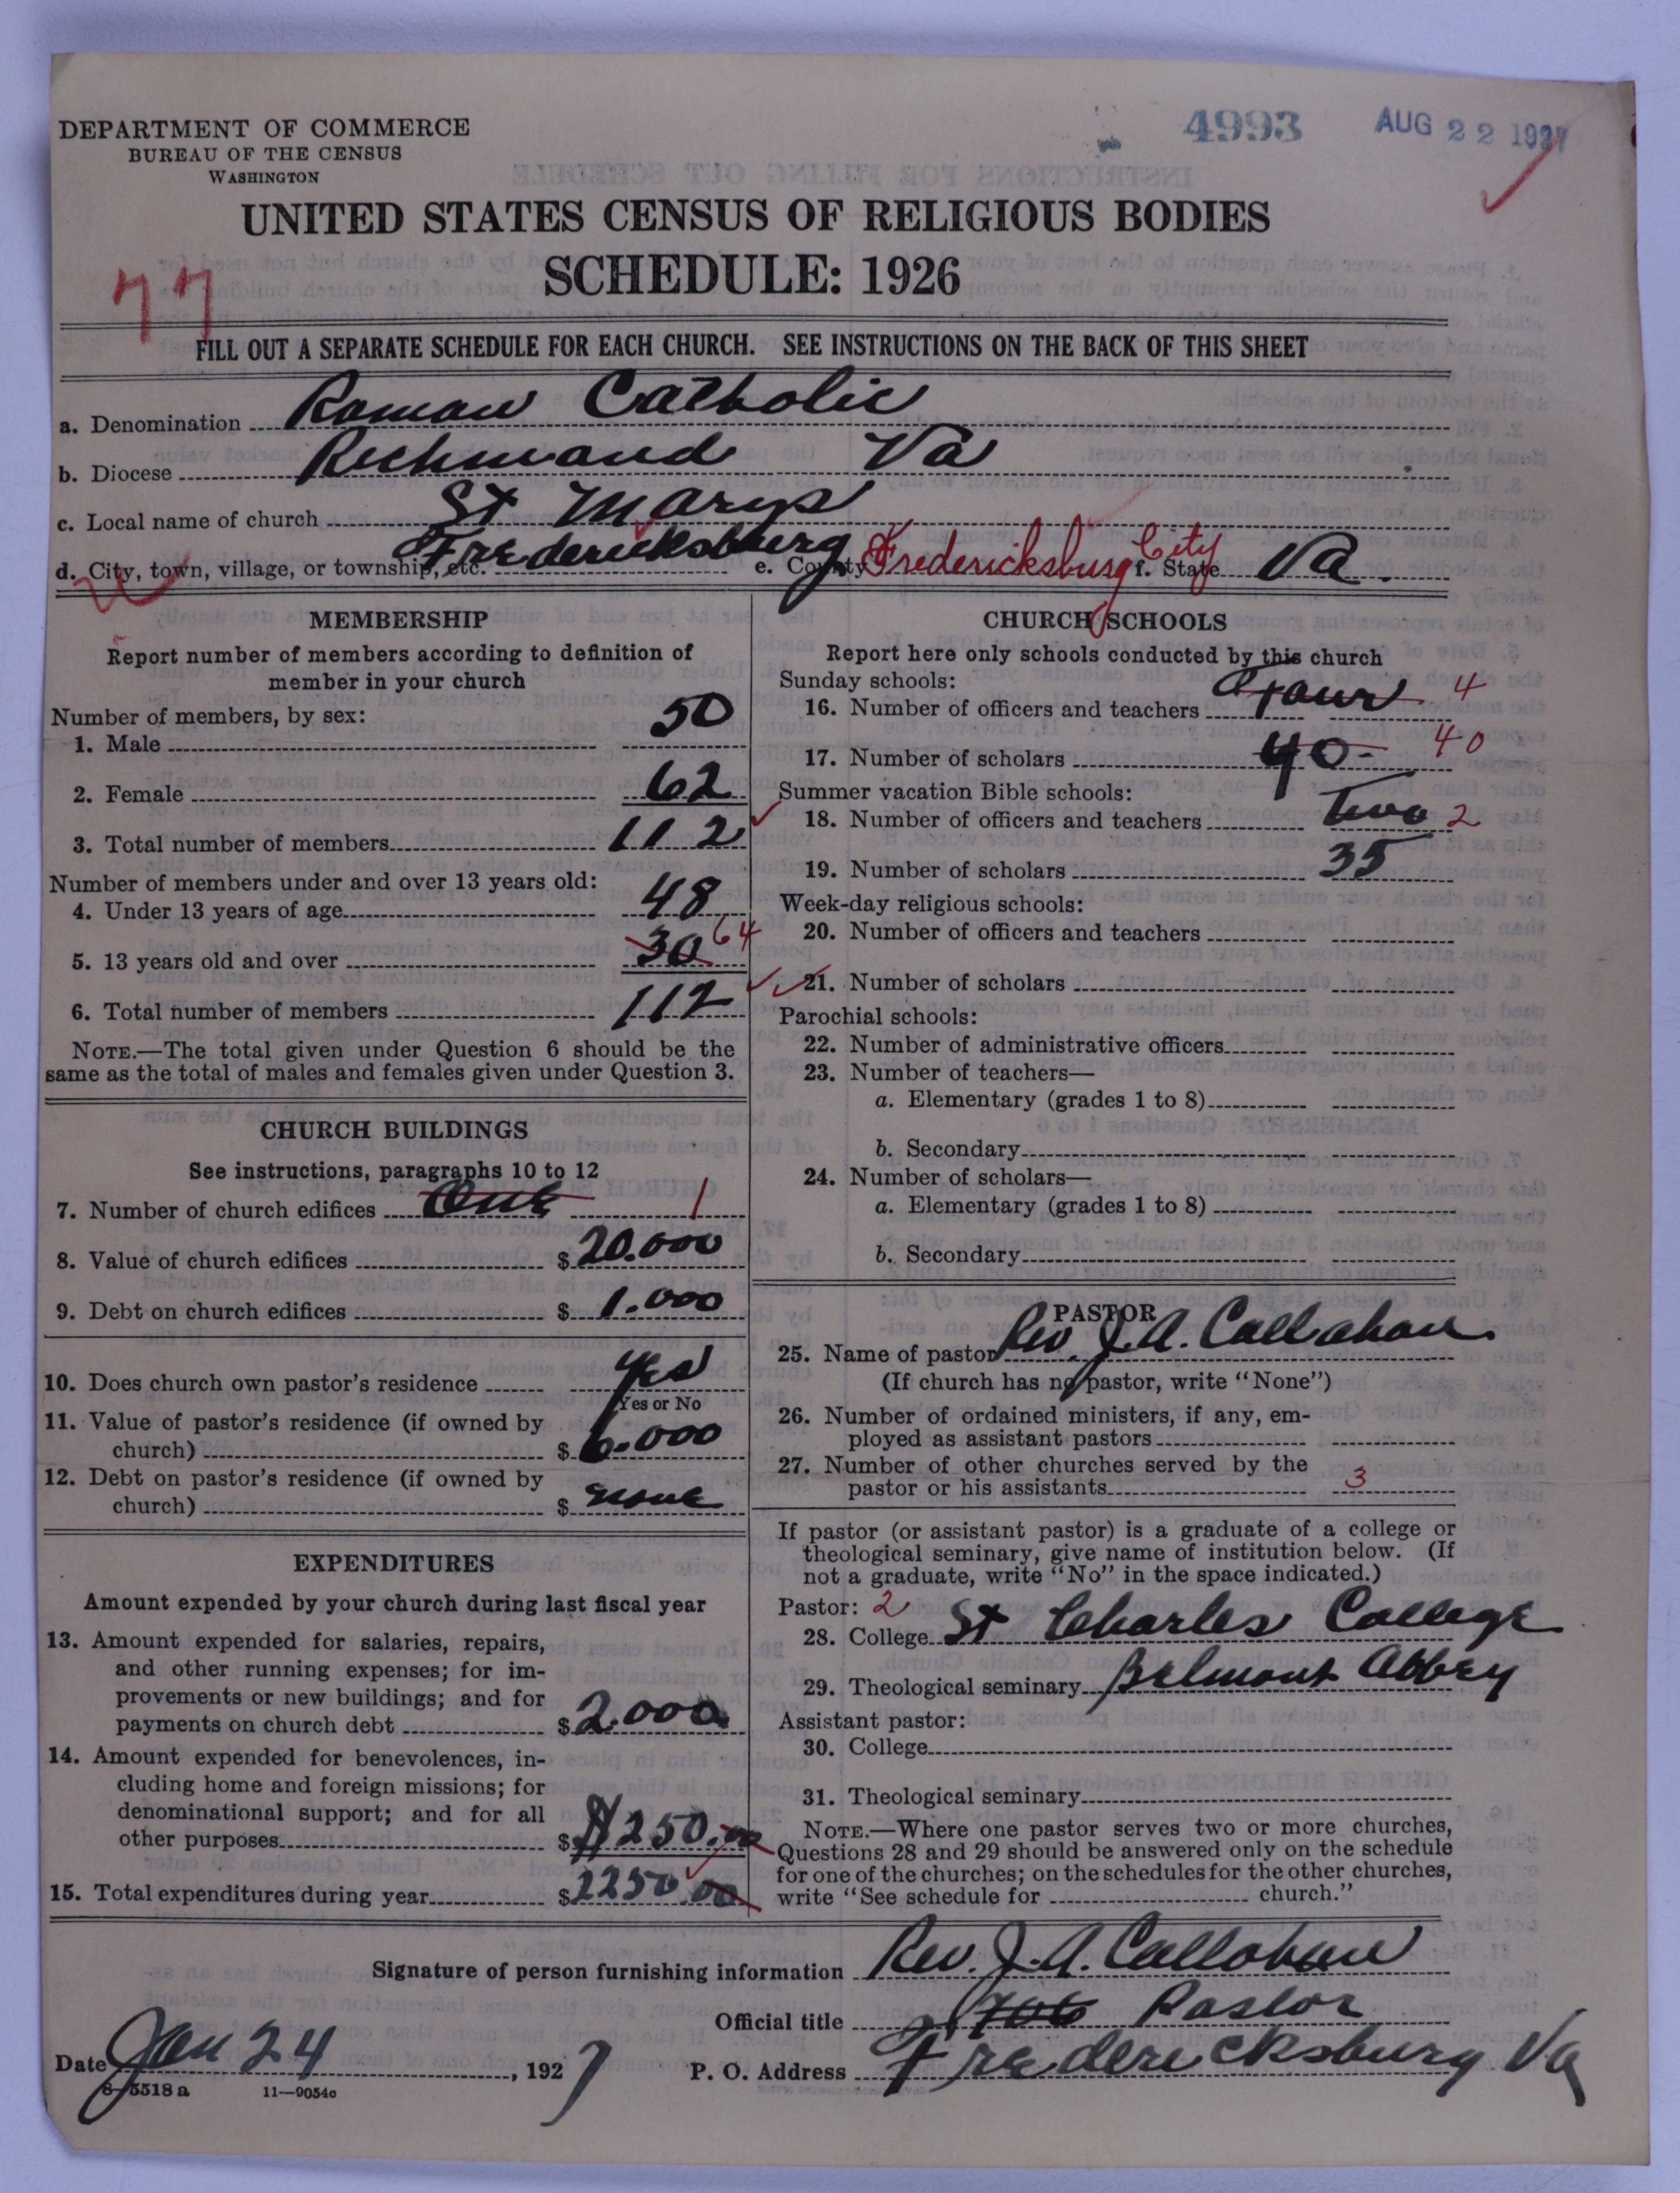 4993 AUG 22 1927
DEPARTMENT OF COMMERCE
BUREAU OF THE CENSUS
WASHINGTON
UNITED STATES CENSUS OF RELIGIOUS BODIES
SCHEDULE: 1926
77
FILL OUT A SEPARATE SCHEDULE FOR EACH CHURCH. SEE INSTRUCTIONS ON THE BACK OF THIS SHEET
a. Denomination Roman Catholic
b. Diocese Richmond Va
c. Local name of church St Marys
d. City, town, village, or township, etc. Fredericksburg e. County Fredericksburg City f. State Va.
MEMBERSHIP
Report number of members according to definition of
member in your church
Number of members, by sex:
1. Male 50
2. Female 62
3. Total number of members 112
Number of members under and over 13 years old:
4. Under 13 years of age 48
5. 13 years old and over 30 64
6. Total number of members 112
NOTE.—The total given under Question 6 should be the
same as the total of males and females given under Question 3.
CHURCH BUILDINGS
See instructions, paragraphs 10 to 12
7. Number of church edifices One 1
8. Value of church edifices $ 20.000
9. Debt on church edifices $ 1.000
10. Does church own pastor's residence yes
Yes or No
11. Value of pastor's residence (if owned by
church) $ 6.000
12. Debt on pastor's residence (if owned by
church) $ none
EXPENDITURES
Amount expended by your church during last fiscal year
13. Amount expended for salaries, repairs,
and other running expenses; for im-
provements or new buildings; and for
payments on church debt $ 2.000
14. Amount expended for benevolences, in-
cluding home and foreign missions; for
denominational support; and for all
other purposes $ $250.00
15. Total expenditures during year $ 2250.00
CHURCH SCHOOLS
Report here only schools conducted by this church
Sunday schools:
16. Number of officers and teachers Four 4
17. Number of scholars 40- 40
Summer vacation Bible schools:
18. Number of officers and teachers Two 2
19. Number of scholars 35
Week-day religious schools:
20. Number of officers and teachers
21. Number of scholars
Parochial schools:
22. Number of administrative officers
23. Number of teachers—
a. Elementary (grades 1 to 8)
b. Secondary
24. Number of scholars—
a. Elementary (grades 1 to 8)
b. Secondary
PASTOR
25. Name of pastor Rev. J. A. Callahan.
(If church has no pastor, write "None")
26. Number of ordained ministers, if any, em-
ployed as assistant pastors
27. Number of other churches served by the
pastor or his assistants 3
If pastor (or assistant pastor) is a graduate of a college or
theological seminary, give name of institution below. (If
not a graduate, write "No" in the space indicated.)
Pastor: 2
28. College St Charles College
29. Theological seminary Belmont Abbey
Assistant pastor:
30. College
31. Theological seminary
NOTE.—Where one pastor serves two or more churches,
Questions 28 and 29 should be answered only on the schedule
for one of the churches; on the schedules for the other churches,
write "See schedule for church."
Signature of person furnishing information Rev. J. A. Callahan
Official title Pastor
Date Jan 24, 1927 P. O. Address Fredericksburg Va
8-5518a 11—9054c